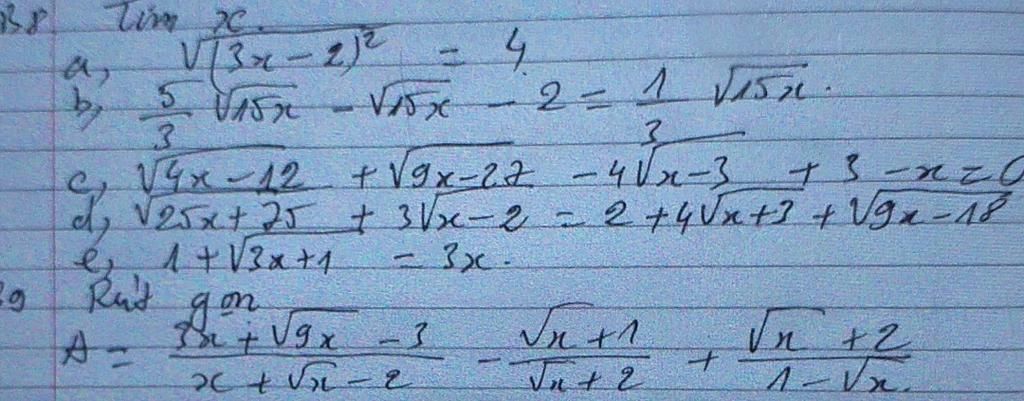 B8 Tìm x.
a, √(3x-2)² = 4
b, 5/3 √15x - √15x - 2 = 1/3 √15x.
c, √4x-12 + √9x-27 - 4√x-3 + 3 - x = 0
d, √25x+75 + 3√x-2 = 2 + 4√x+3 + √9x-18
e, 1 + √3x+1 = 3x.
B9 Rút gọn
A = 3x + √9x - 3 / x + √x - 2 - √x + 1 / √x + 2 + √x + 2 / 1 - √x.